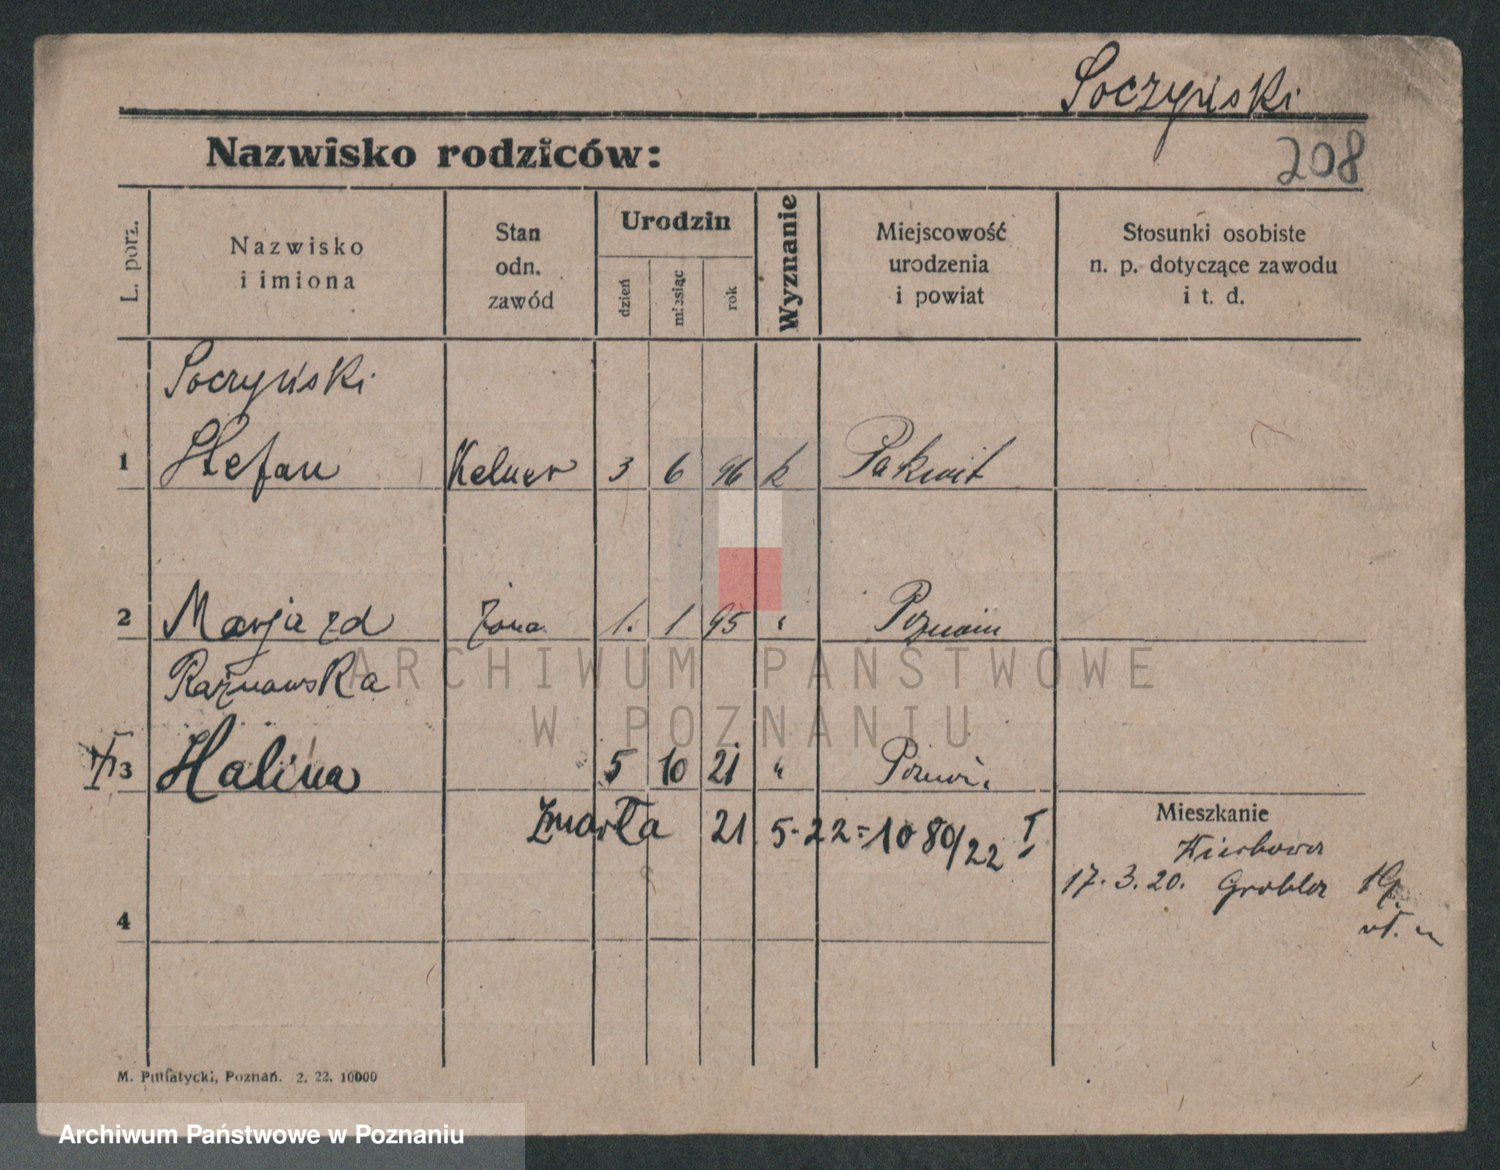 Soczyński
208
Nazwisko rodziców:
L. porz.
Nazwisko
i imiona
Stan
odn.
zawód
Urodzin
dzień
miesiąc
rok
Wyznanie
Miejscowość
urodzenia
i powiat
Stosunki osobiste
n. p. dotyczące zawodu
i t. d.
Soczyński
1 Stefan Kelner 3 6 96 k Pakość
2 Marja zd żona 1. 1 95 " Poznań
Raznawska
3 Halina 5 10 21 " Poznań
zmarła 21 5-22=1080/22 I
Mieszkanie
17.3.20. Grobla
4
M. Putiatycki, Poznań. 2. 22. 10000
ARCHIWUM PAŃSTWOWE
W POZNANIU
Archiwum Państwowe w Poznaniu